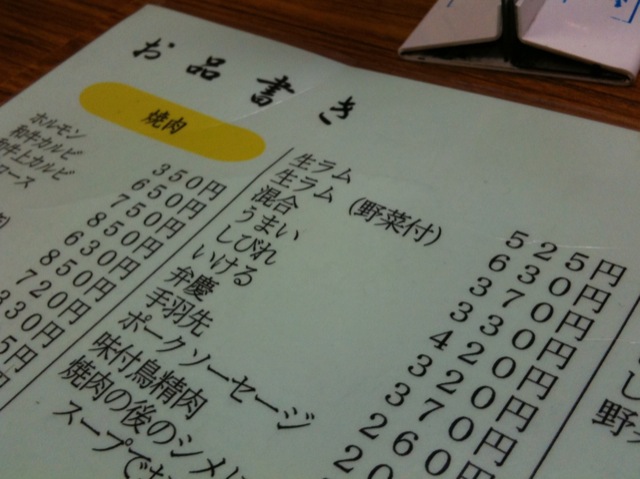 お品書き
焼肉
ホルモン 350円
和牛カルビ 650円
和牛上カルビ 750円
ロース 850円
630円
850円
720円
330円
5円
円
生ラム 525円
生ラム (野菜付) 630円
混合 370円
うまい 330円
しびれ 420円
いける 320円
弁慶 370円
手羽先 260円
ポークソーセージ 20
味付鳥精肉
焼肉の後のシメに
スープでお
し
野